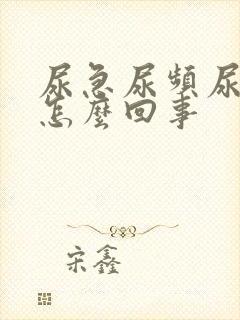 尿急尿頻尿
怎麼回事
宋鑫